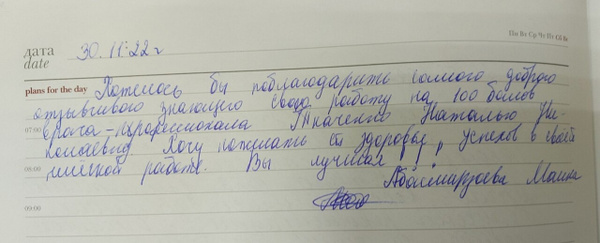 Пн Вт Ср Чт Пт Сб Вс
дата
date
30.11.22 г
plans for the day Хотелось бы поблагодарить самого доброго
отзывчивого знающего свою работу на 100 балов
07:00
врача-профессионала Ткаченко Наталью Ни-
колаевну Хочу пожелать ей здоровья, успехов в своей
08:00
работе. Вы лучшая
Абасмирзоева Малика
09:00